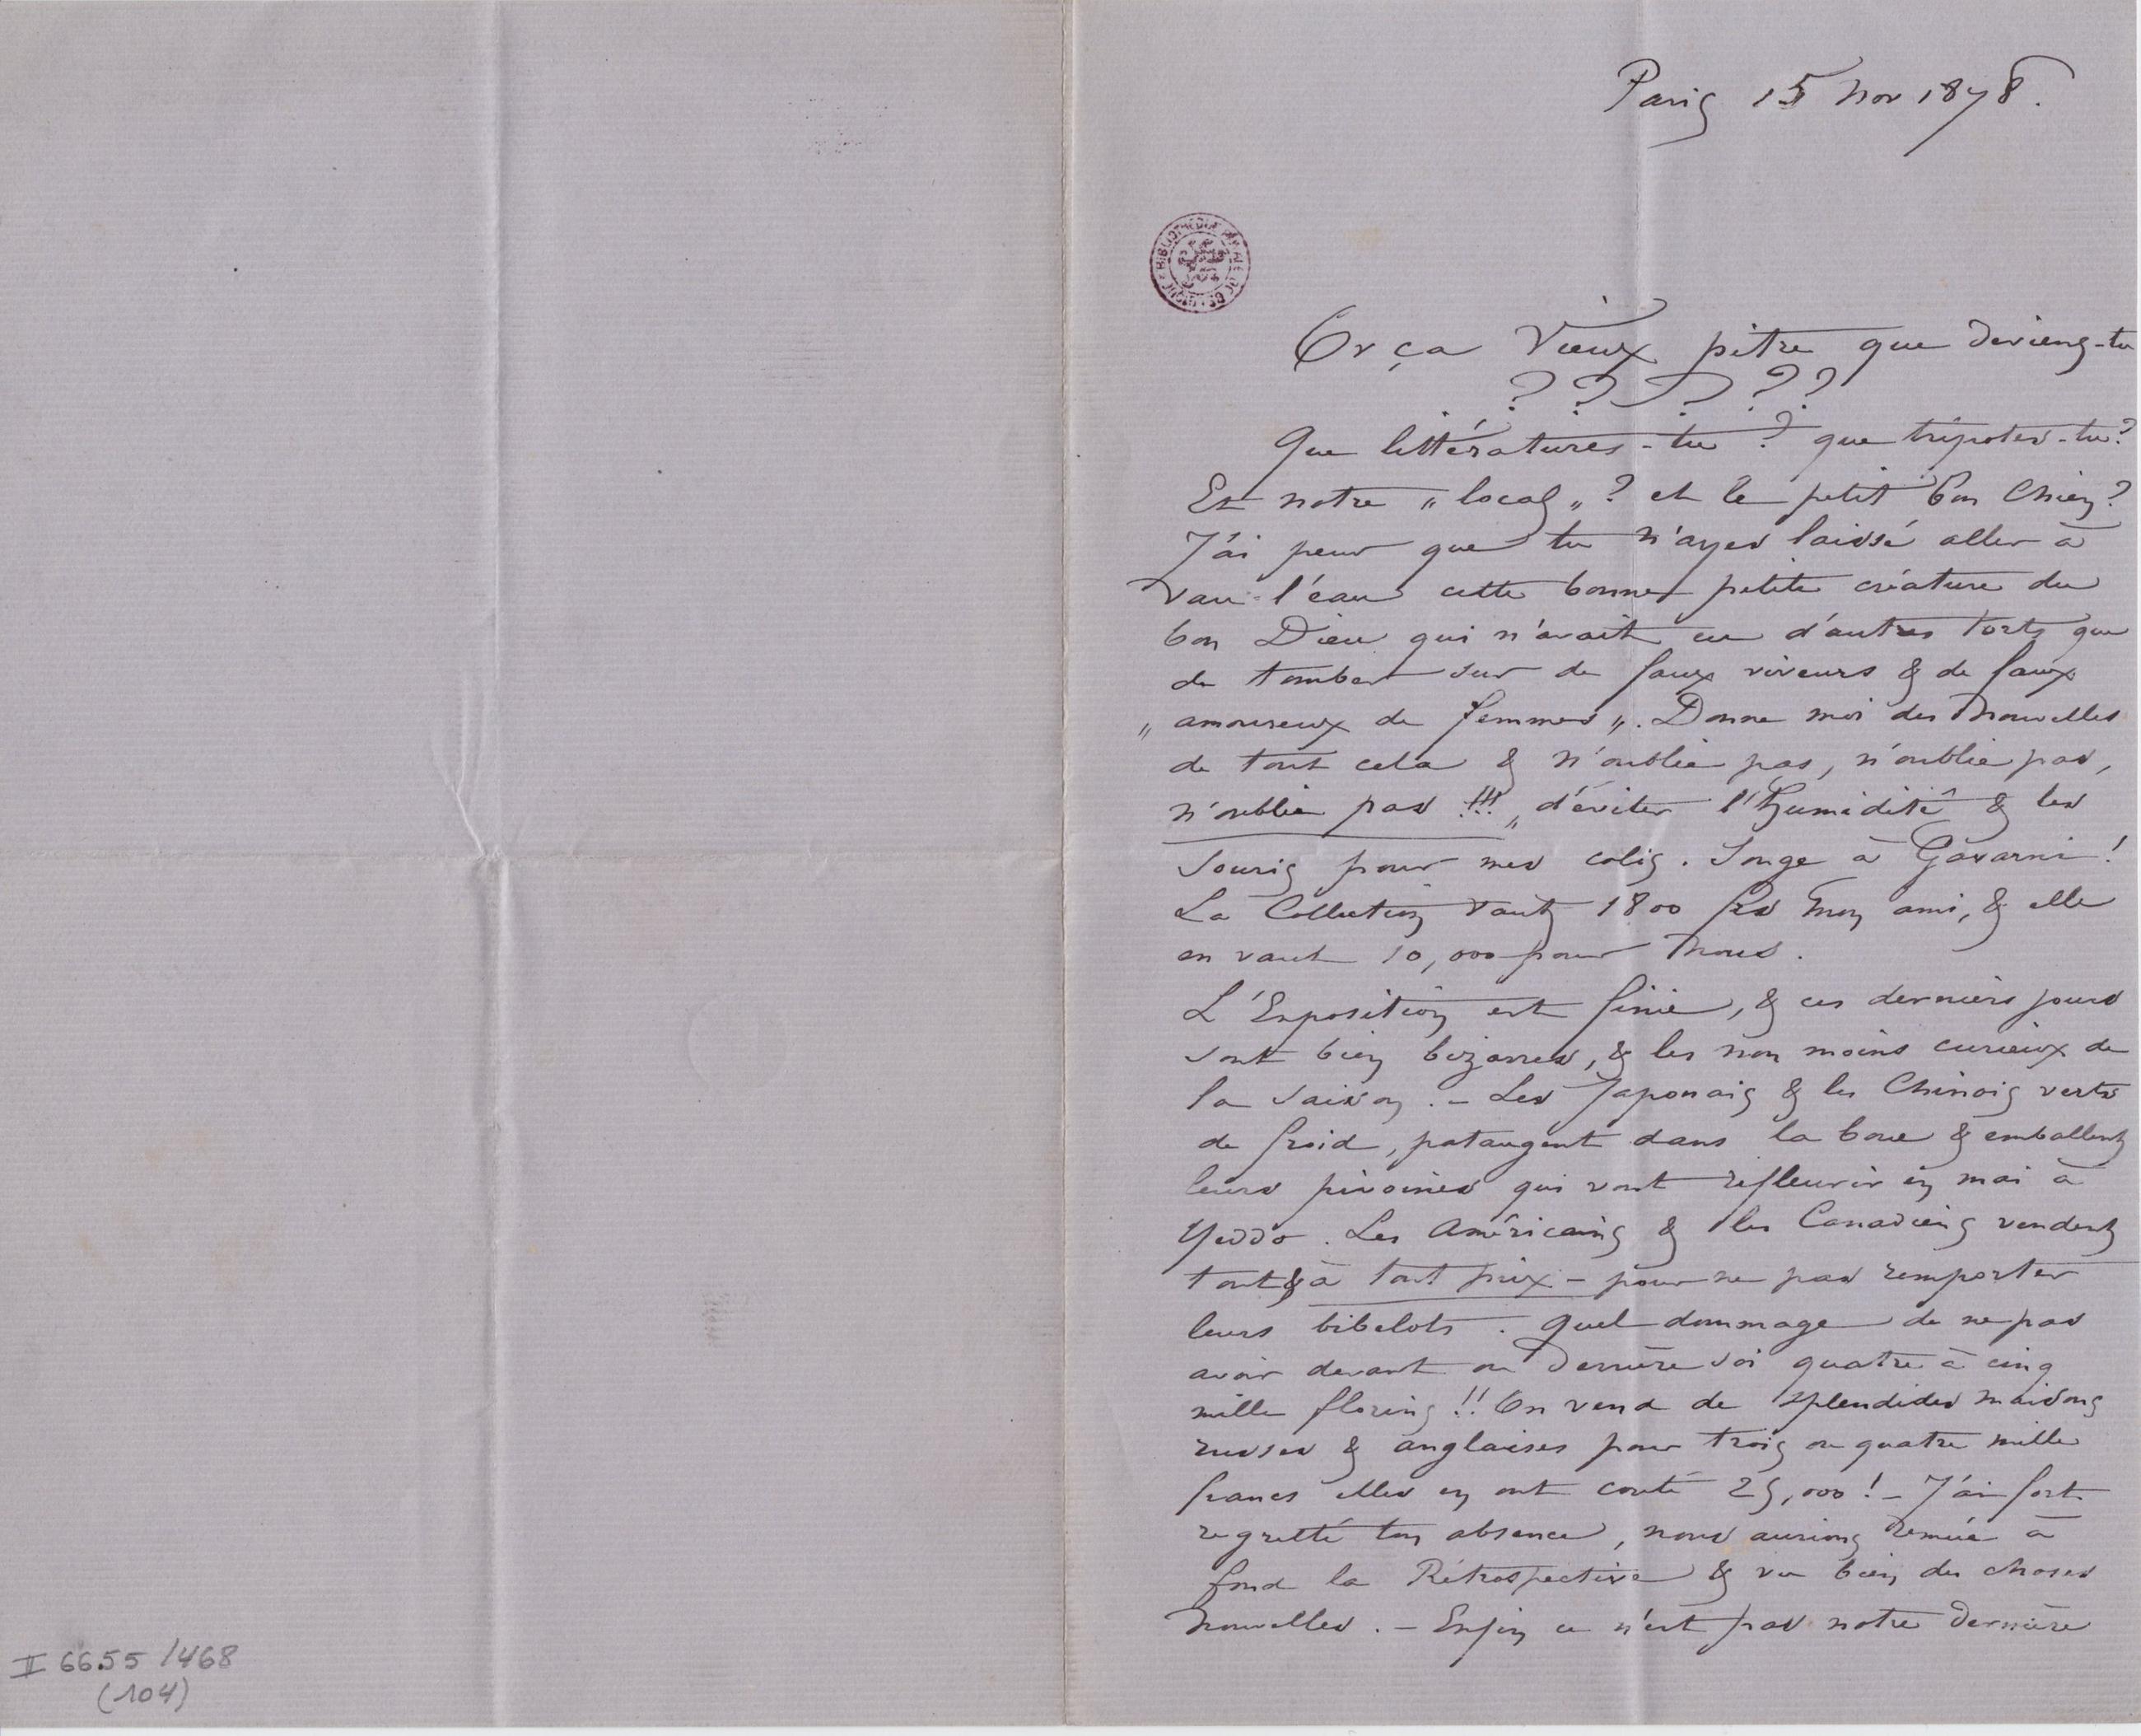 Paris 15 Nov 1878.
BIBLIOTHÈQUE ROYALE DE BELGIQUE
Or ça Vieux pitre que deviens-tu
? ? ? ? ?
Que littératures-tu ? que tripotes-tu ?
Et notre „ local „ ? et le petit bon Chien ?
J'ai peur que tu n'ayes laissé aller à
vau-l'eau cette bonne petite créature du
bon Dieu qui n'avait eu d'autres torts que
de tomber sur de faux viveurs & de faux
„ amoureux de femmes „. Donne moi des nouvelles
de tout cela & n'oublie pas, n'oublie pas,
n'oublie pas !!! „ d'éviter l'Humidité & les
Souris pour mes colis. Songe à Gavarni !
La Collection vaut 1800 frs mon ami, & elle
en vaut 10,000 pour nous.
L'Exposition est finie, & ces derniers jours
sont bien bizarres, & les non moins curieux de
la saison. – Les Japonais & les Chinois verts
de froid, pataugent dans la boue & emballent
leurs pivoines qui vont refleurir en mai à
Yeddo. Les Américains & les Canadiens vendent
tout & à tout prix – pour ne pas remporter
leurs bibelots. Quel dommage de ne pas
avoir devant ou derrière soi quatre à cinq
mille florins !! On vend de splendides maisons
russes & anglaises pour trois ou quatre mille
francs elles en ont couté 25,000 ! – J'ai fort
regretté ton absence, nous aurions remué à
fond la Rétrospective & vu bien des choses
nouvelles. – Enfin ce n'est pas notre dernière
II 6655 /468
(104)